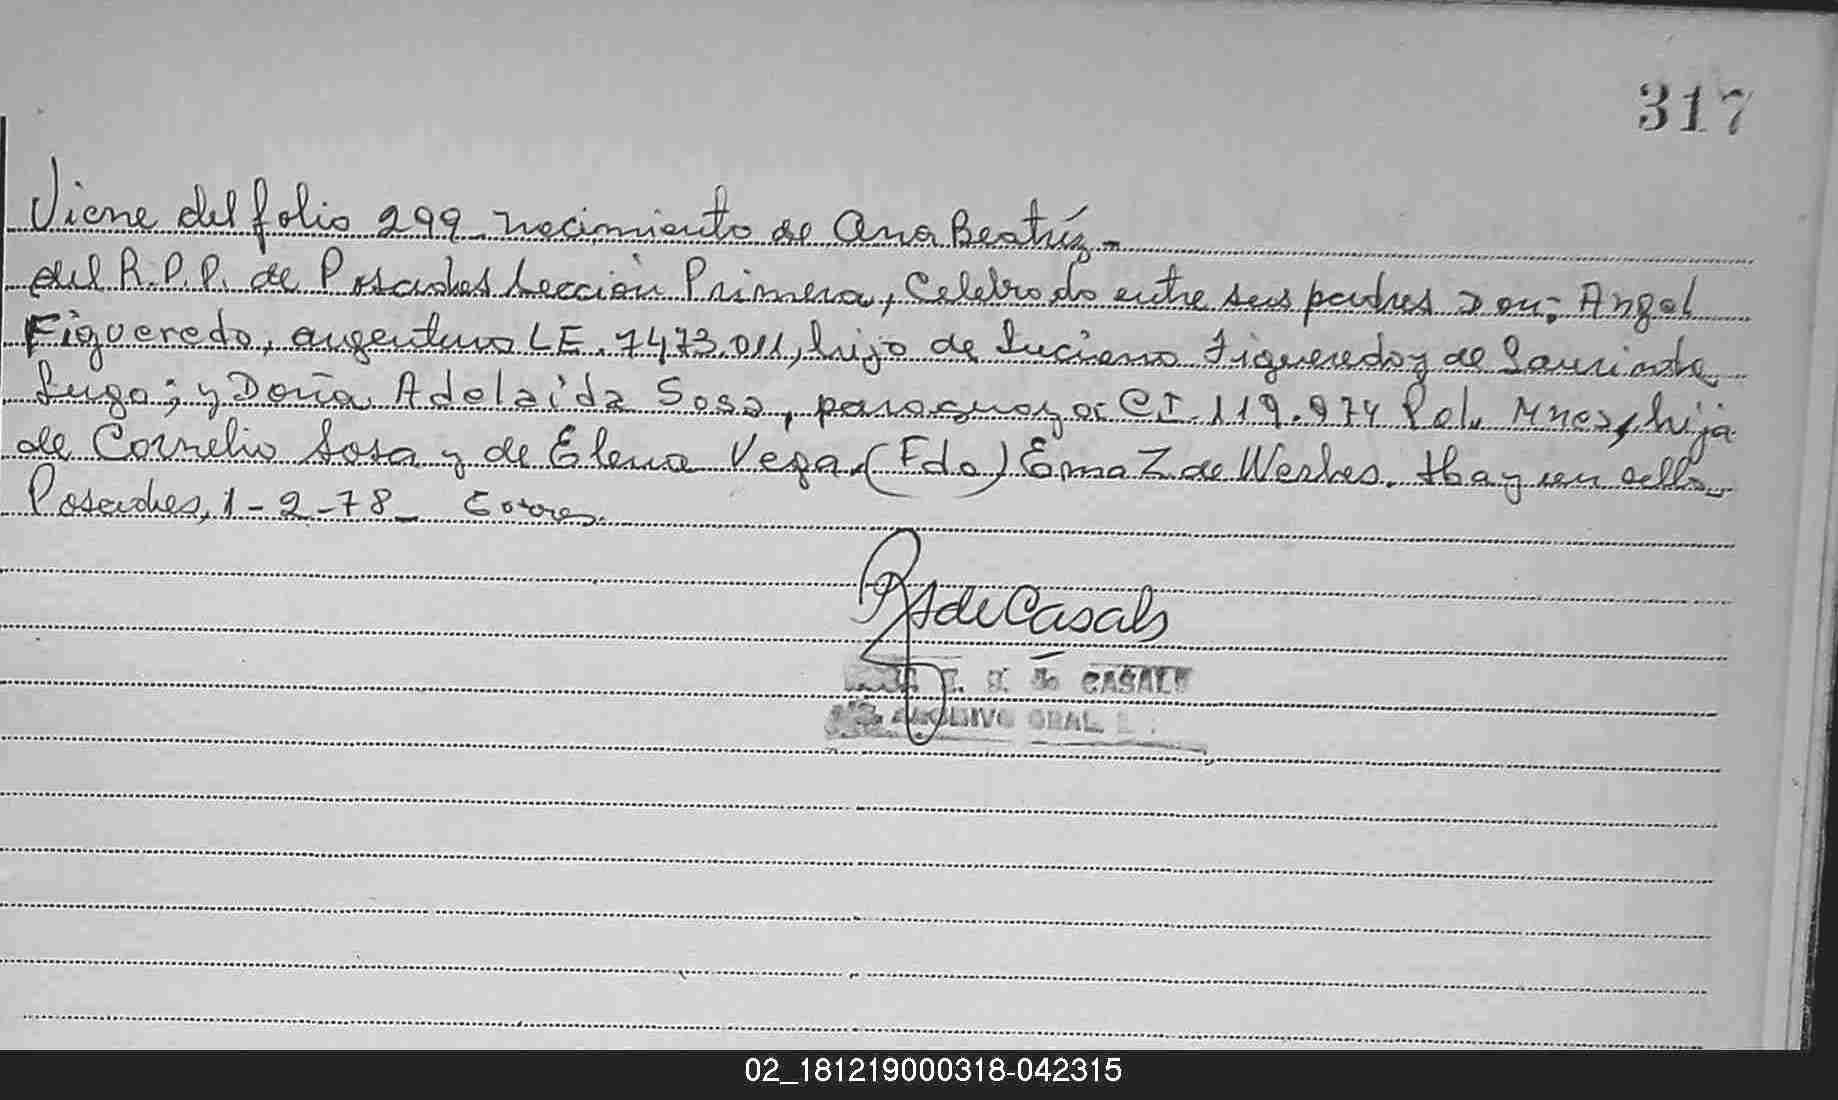 317
Viene del folio 299 nacimiento de Ana Beatríz-
del R.P.P. de Posadas Sección Primera, Celebrado entre sus padres Don: Angel
Figueredo, argentino LE. 7473.011, hijo de Luciano Figueredo y de Laurinda
Lugo; y Doña Adelaida Sosa, paraguaya C.I. 119.974 Pol. Mnes, hija
de Cornelio Sosa y de Elena Vega. (Fdo) Ema Z de Weshes. Hay un sello
Posadas, 1-2-78_
de Casals
CASALS
ARCHIVO GRAL
02_181219000318-042315